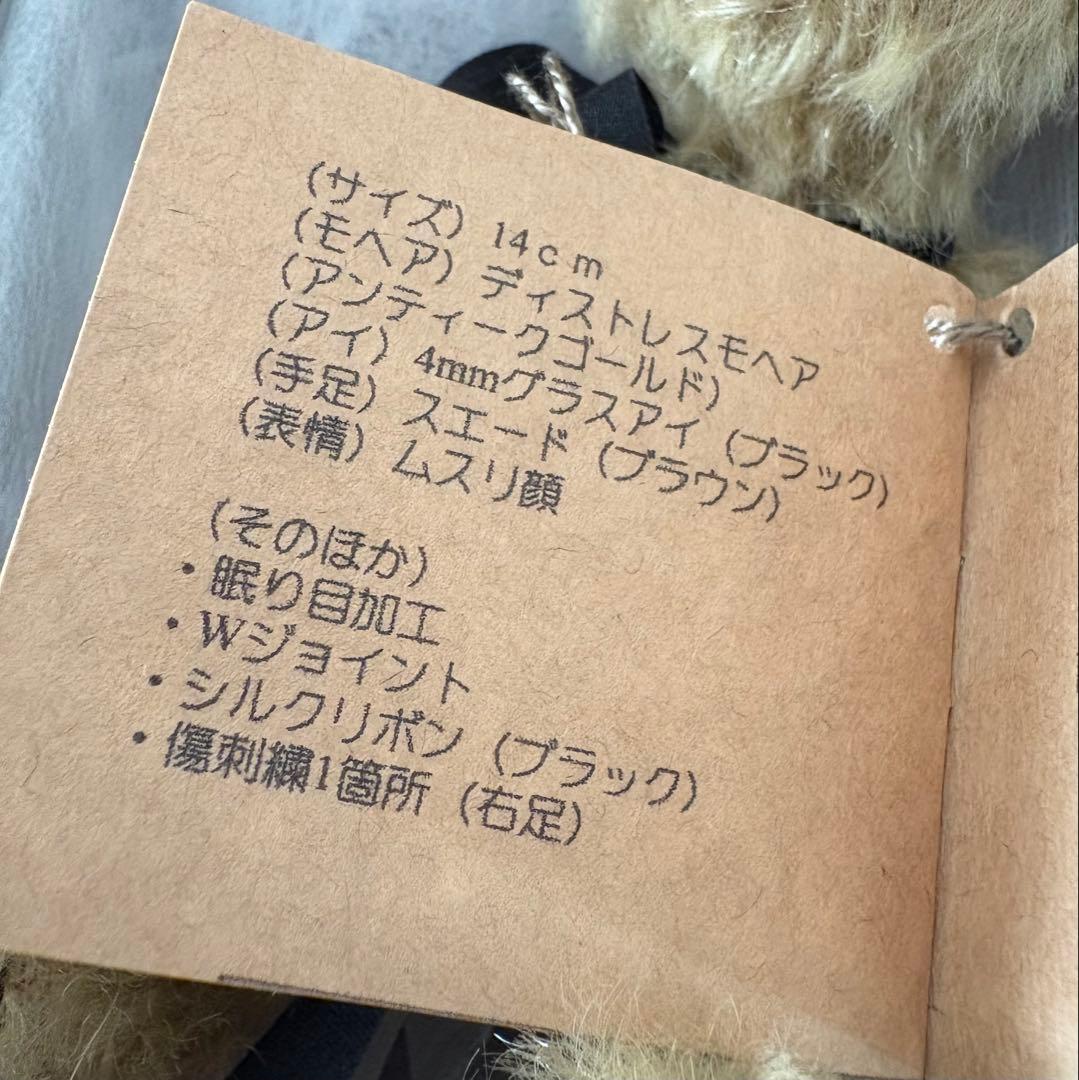 (サイズ) 14cm
(モヘア) ディストレスモヘア
(アンティークゴールド)
(アイ) 4mmグラスアイ (ブラック)
(手足) スエード (ブラウン)
(表情) ムスリ顔
(そのほか)
・眠り目加工
・Wジョイント
・シルクリボン (ブラック)
・傷刺繍1箇所 (右足)